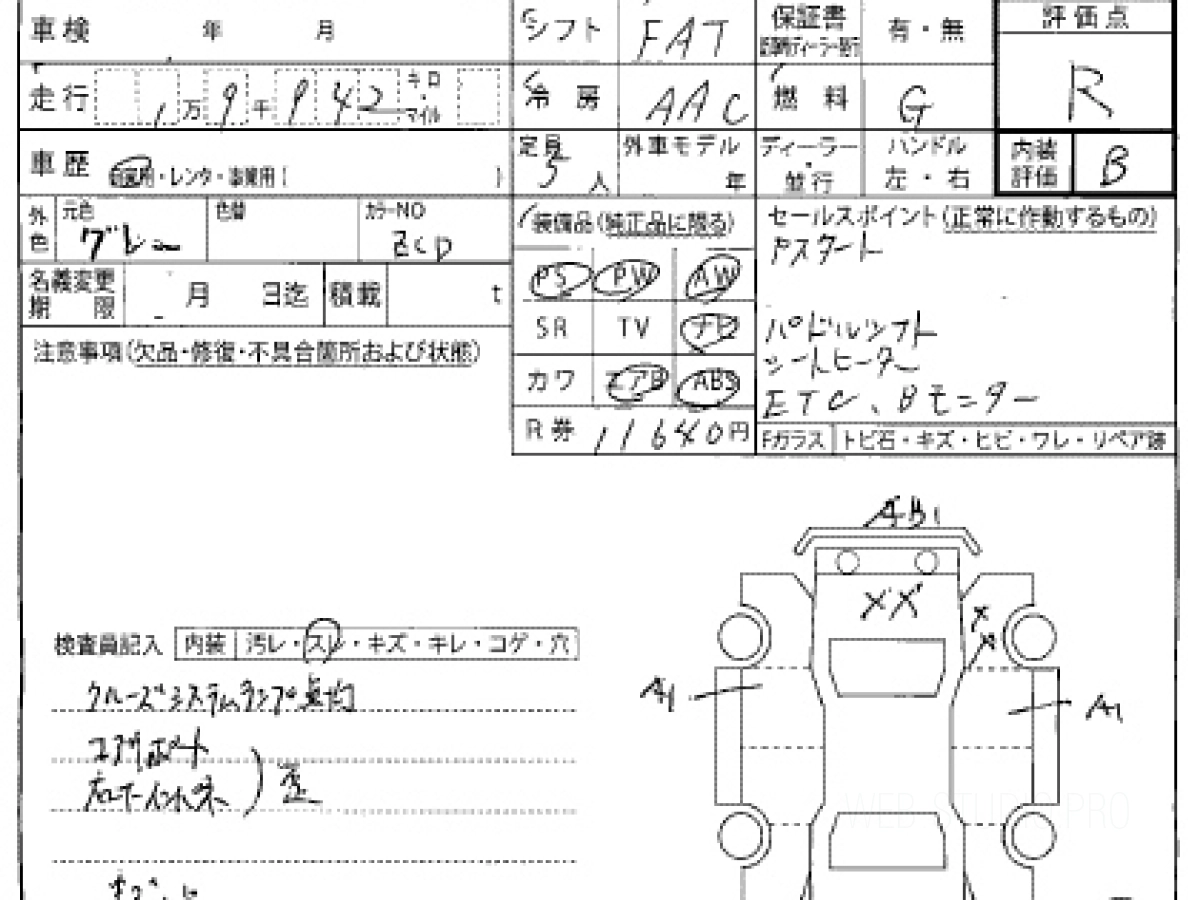 車検 年 月 シフト FAT 保証書 有・無 評価点
走行 1万9千942 キロ・マイル 冷房 AAC 燃料 G R
車歴 自家用・レンタ・事業用( ) 定員 5人 外車モデル 年 ディーラー・並行 ハンドル 左・右 内装評価 B
外色 元色 グレー 色替 カラーNO ZCD
装備品(純正品に限る) セールスポイント(正常に作動するもの)
Pスタート
名義変更期限 月 日迄 積載 t PS PW AW
SR TV ナビ パドルシフト
シートヒーター
注意事項(欠品・修復・不具合箇所および状態) カワ エアB ABS ETC、Bモニター
R券 11640円 Fガラス トビ石・キズ・ヒビ・ワレ・リペア跡
AB1
XX
X
X
検査員記入 内装 汚レ・スレ・キズ・キレ・コゲ・穴
A1 A1
クルーズシステムランプ点灯
コアサポート
右フードインナー
歪
WEB STUDIO PRO